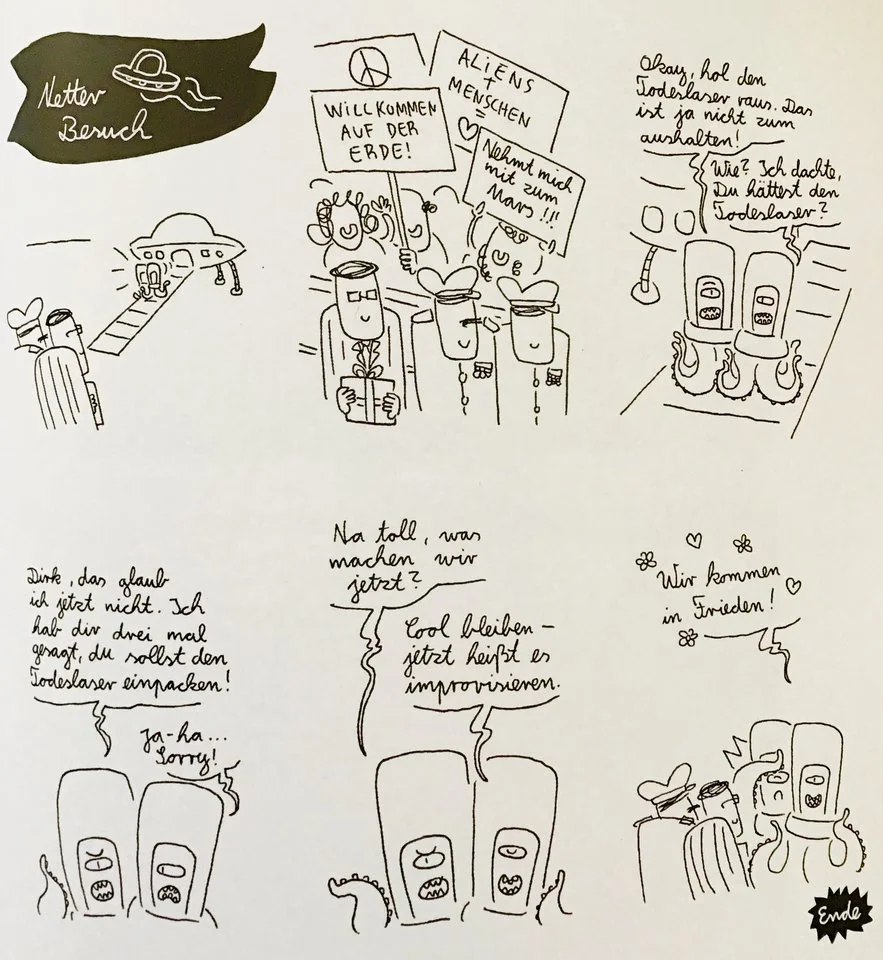 Netter
Besuch
WILLKOMMEN
AUF DER
ERDE!
ALIENS
+
MENSCHEN
=
Nehmt mich
mit zum
Mars!!!
Okay, hol den
Todeslaser raus. Das
ist ja nicht zum
aushalten!
Wie? Ich dachte,
Du hättest den
Todeslaser?
Dirk, das glaub
ich jetzt nicht. Ich
hab dir drei mal
gesagt, du sollst den
Todeslaser einpacken!
Ja-ha...
Sorry!
Na toll, was
machen wir
jetzt?
Cool bleiben –
jetzt heißt es
improvisieren.
Wir kommen
in Frieden!
Ende